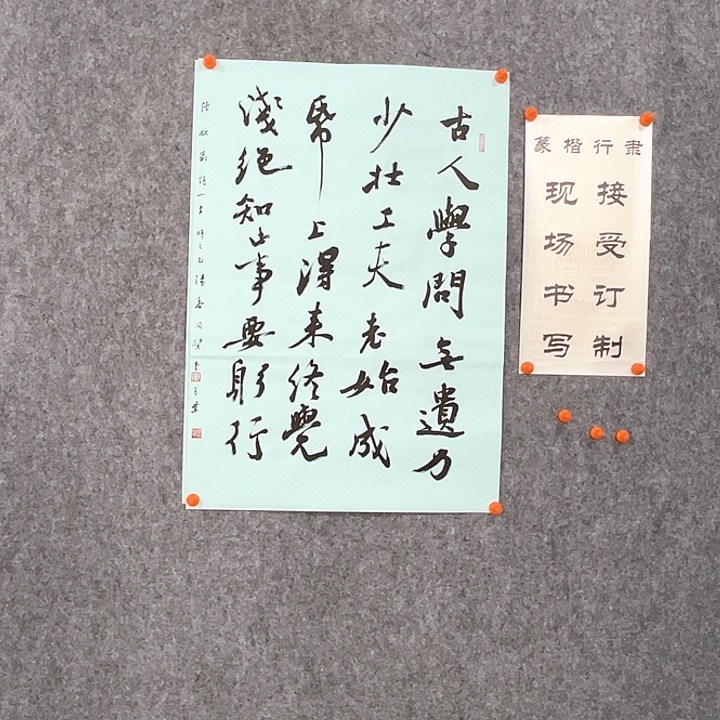 篆楷行隶
接受订制
现场书写
古人學問無遺力
少壮工夫老始成
帋上得来終覺
淺絕知此事要躬行
陸放翁詩一首